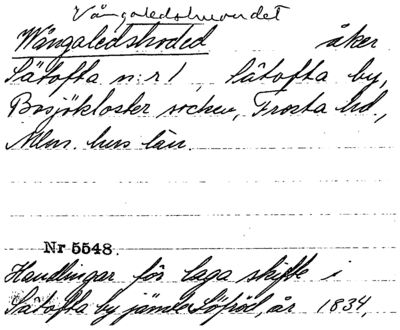 Vångaledshuvudet
Wångaledshoded åker
Sätofta n:r 1, Sätofta by,
Bosjökloster socken, Frosta hd.,
Mlm. hus län.
Nr 5548.
Handlingar för laga skifte i
Sätofta by jämte Löfröd, år 1834,